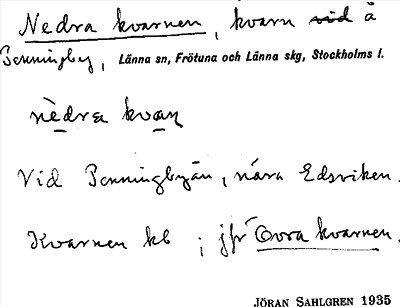 Nedra kvarnen, kvarn vid å
Penningby, Länna sn, Frötuna och Länna skg, Stockholms l.
nèdra kvan
Vid Penningbyån, nära Edsviken.
Kvarnen kb ; jfr Övra kvarnen.
JÖRAN SAHLGREN 1935